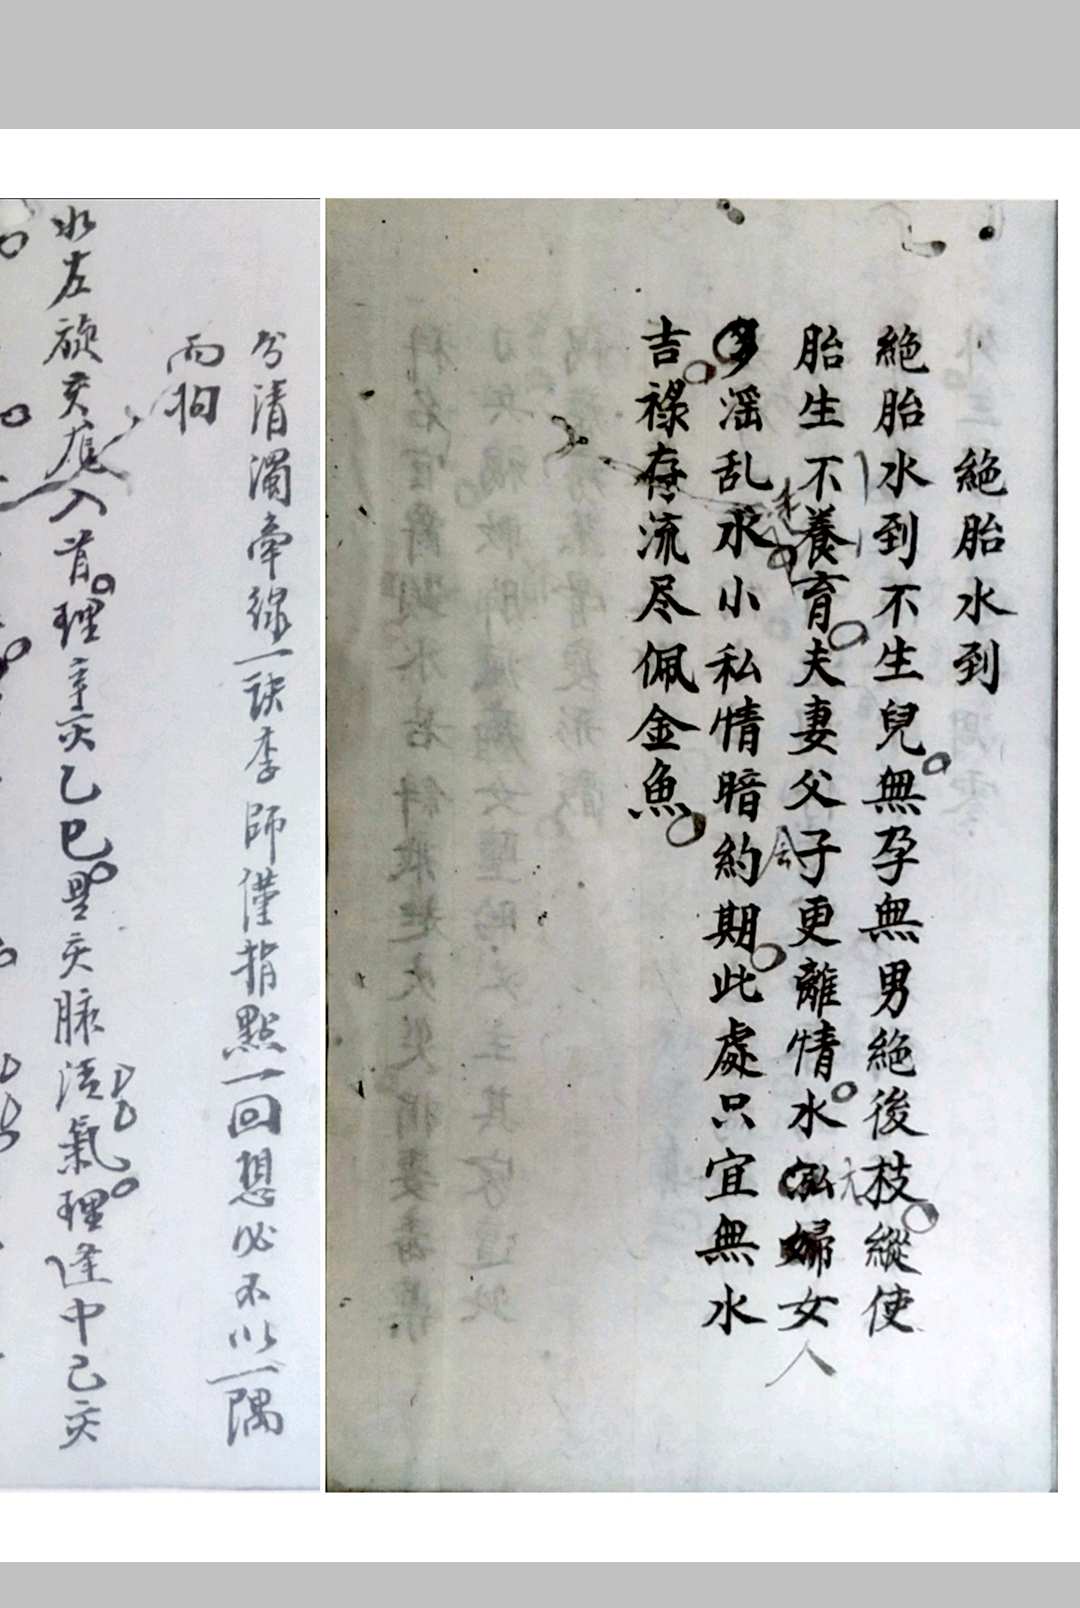 絕胎水到
絕胎水到不生兒無孕無男絕後枝縱使
胎生不養育夫妻父子更離情水泓婦女
多滛乱水小私情暗約期此處只宜無水
吉祿存流尽佩金魚
未
会
人
分清濁牽線一訣李師僅指點一回想必不以一隅
而拘
水左旋亥龍入首理辛亥乙巳是亥脉活氣理逢中己亥